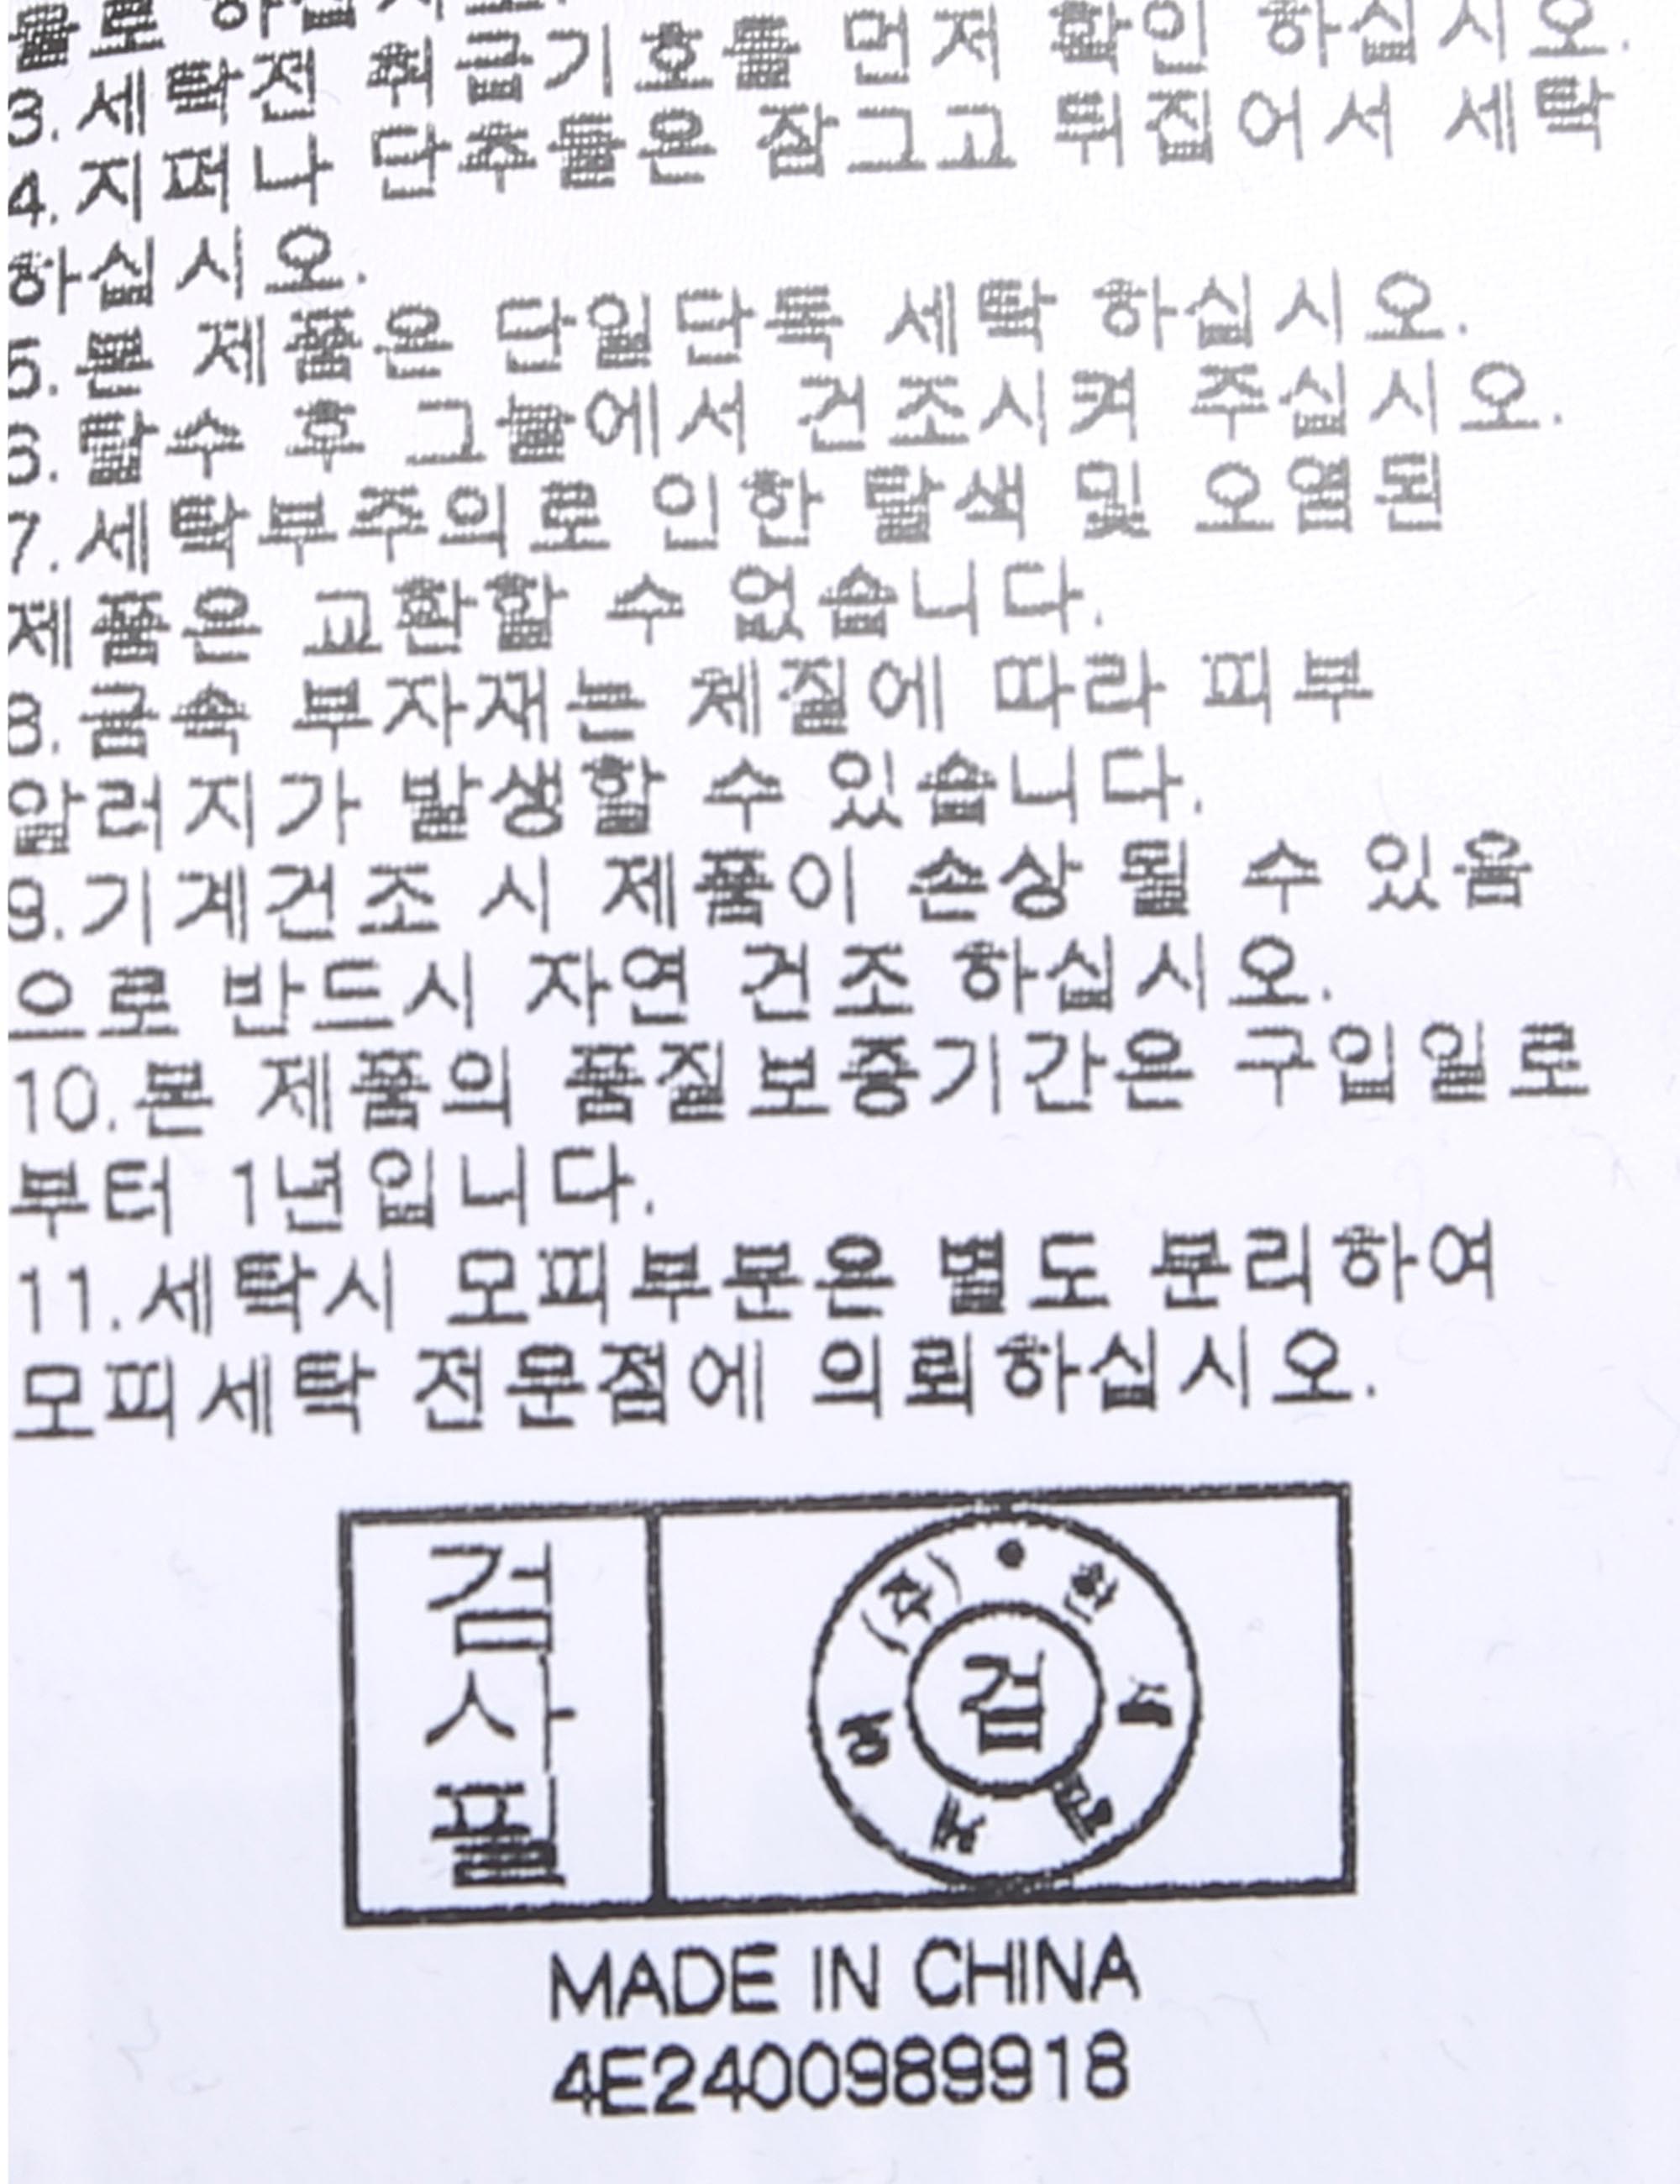 물로 하십시오.
3.세탁전 취급기호를 먼저 확인 하십시오.
4.지퍼나 단추들은 잠그고 뒤집어서 세탁
하십시오.
5.본 제품은 단일단독 세탁 하십시오.
6.탈수 후 그늘에서 건조시켜 주십시오.
7.세탁부주의로 인한 탈색 및 오염된
제품은 교환할 수 없습니다.
8.금속 부자재는 체질에 따라 피부
알러지가 발생할 수 있습니다.
9.기계건조 시 제품이 손상 될 수 있음
으로 반드시 자연 건조 하십시오.
10.본 제품의 품질보증기간은 구입일로
부터 1년입니다.
11.세탁시 모피부분은 별도 분리하여
모피세탁 전문점에 의뢰하십시오.
검사필
검
MADE IN CHINA
4E2400989918